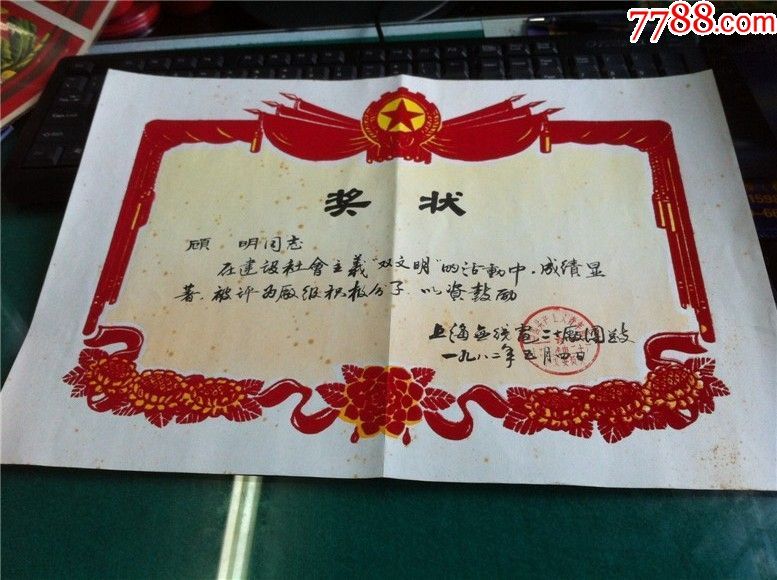 7788.com
奖状
顾 明同志
在建设社會主義"双文明"的活動中.成績显
著.被评为厰级积极分子.以资鼓励
上海無线電二十厰團委
一九八二年五月四日